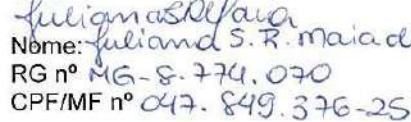 Nome: Juliana S. R. Maia d
RG nº MG-8.774.070
CPF/MF nº 047.849.376-25